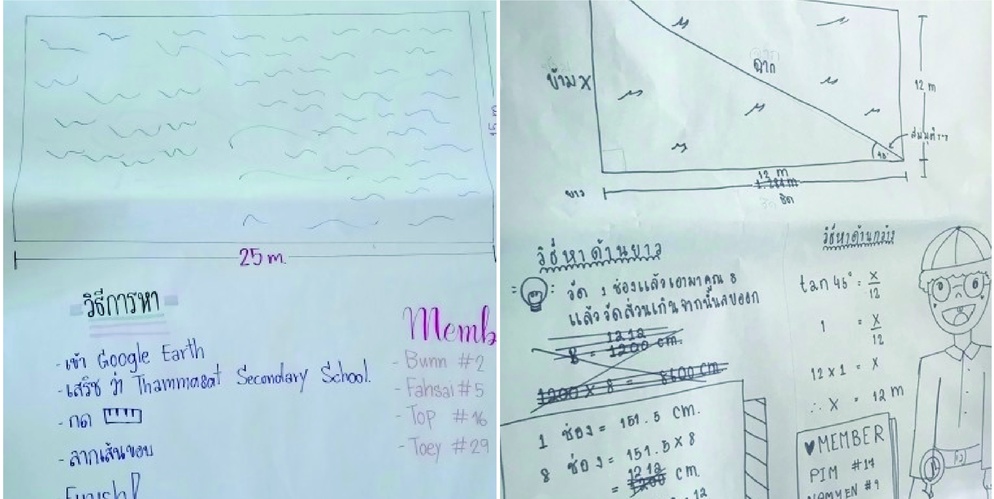 25 m.
วิธีการหา
- เข้า Google Earth
- เสริช ว่า Thammasat Secondary School.
- กด
- ลากเส้นขอบ
Finish!
Memb
- Bunn #2
- Fahsai #5
- Top #16
- Toey #29
ข้าม X
ฉาก
12 m
สมมุติ
ยาว
12 m
วิธีหาด้านยาว
วัด 1 ช่องแล้วเอามาคูณ 8
แล้ววัดส่วนเกินจากนั้นลบออก
1212
8 = 1200 cm.
1200 x 8 = 8600 cm.
1 ช่อง = 151.5 cm.
8 ช่อง = 151.5 x 8
1212
= 1200 cm
วิธีหาด้านกว้าง
tan 45° = x/12
1 = x/12
12 x 1 = x
∴ x = 12 m
♥MEMBER
PIM #17